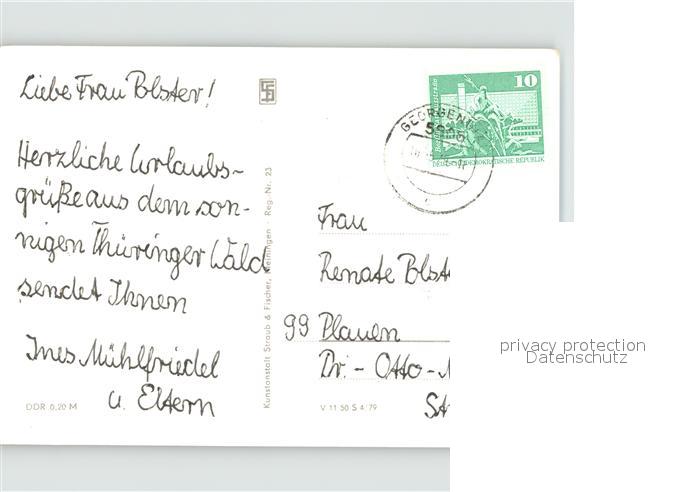 Liebe Frau Polster!
Herzliche Urlaubs-
grüße aus dem son-
nigen Thüringer Wald
sendet Ihnen
Ines Mühlfriedel
u. Eltern
DDR 0,20 M
Kunstanstalt Straub & Fischer, Meiningen Reg.-Nr. 23
V 11 50 S 4/79
10
DEUTSCHE DEMOKRATISCHE REPUBLIK
Frau
Renate Polst
99 Plauen
Dr.-Otto-
St
privacy protection
Datenschutz